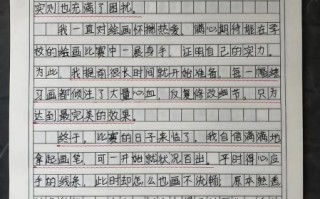 实则也充满了困扰。
我一直对绘画怀揣热爱，满心期待能在学
校的绘画比赛中一展身手，证明自己的实力。
为此，我提前很长时间就开始准备，每一幅练
习画都倾注了大量心血，反复修改细节，只为
达到最完美的效果。
终于，比赛的日子来临了，我自信满满地
拿起画笔，可一开始就状况百出。平时得心应
手的线条，此时却怎么也画不流畅；原本熟悉